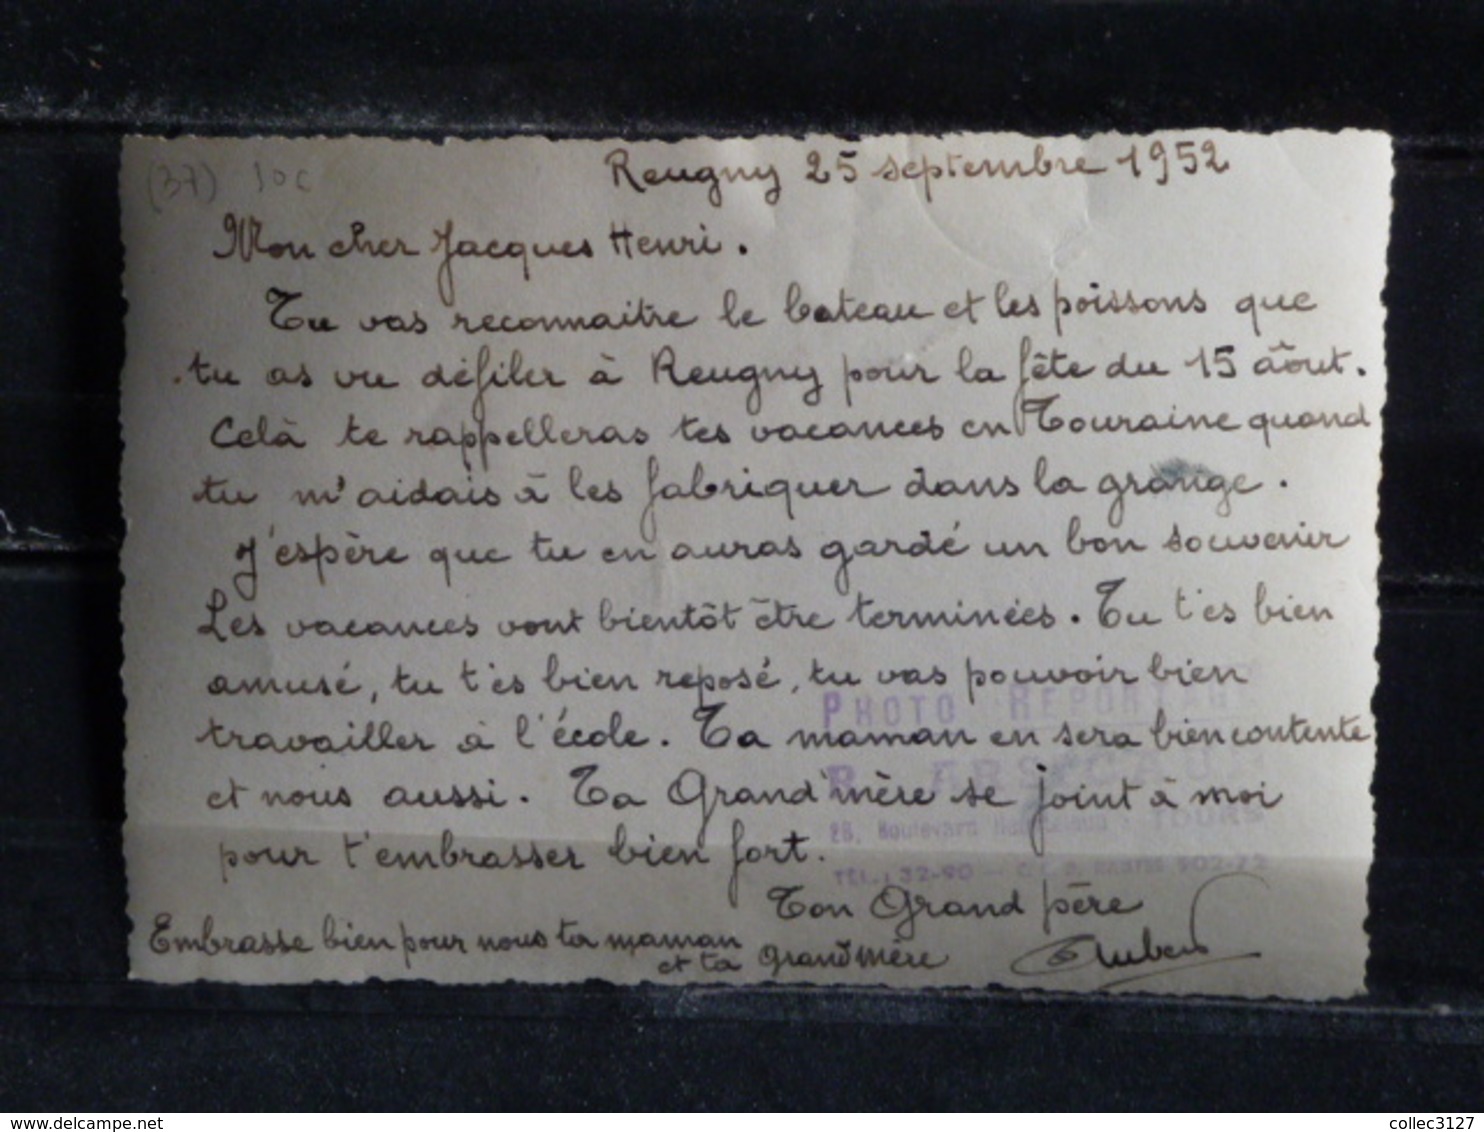 (37) 10c
Reugny 25 septembre 1952
Mon cher Jacques Henri.
Tu vas reconnaitre le bateau et les poissons que
tu as vu défiler à Reugny pour la fête du 15 août.
Celà te rappelleras tes vacances en Touraine quand
tu m'aidais à les fabriquer dans la grange.
J'espère que tu en auras gardé un bon souvenir
Les vacances vont bientôt être terminées. Tu t'es bien
amusé, tu t'es bien reposé, tu vas pouvoir bien
travailler à l'école. Ta maman en sera bien contente
et nous aussi. Ta Grand'mère se joint à moi
pour t'embrasser bien fort.
Ton Grand père
Embrasse bien pour nous ta maman
et ta grand'mère
PHOTO REPORTAGE
R.
28, Boulevard TOURS
TEL.: 32-90 — C.C.P. NANTES 902-72
collec3127